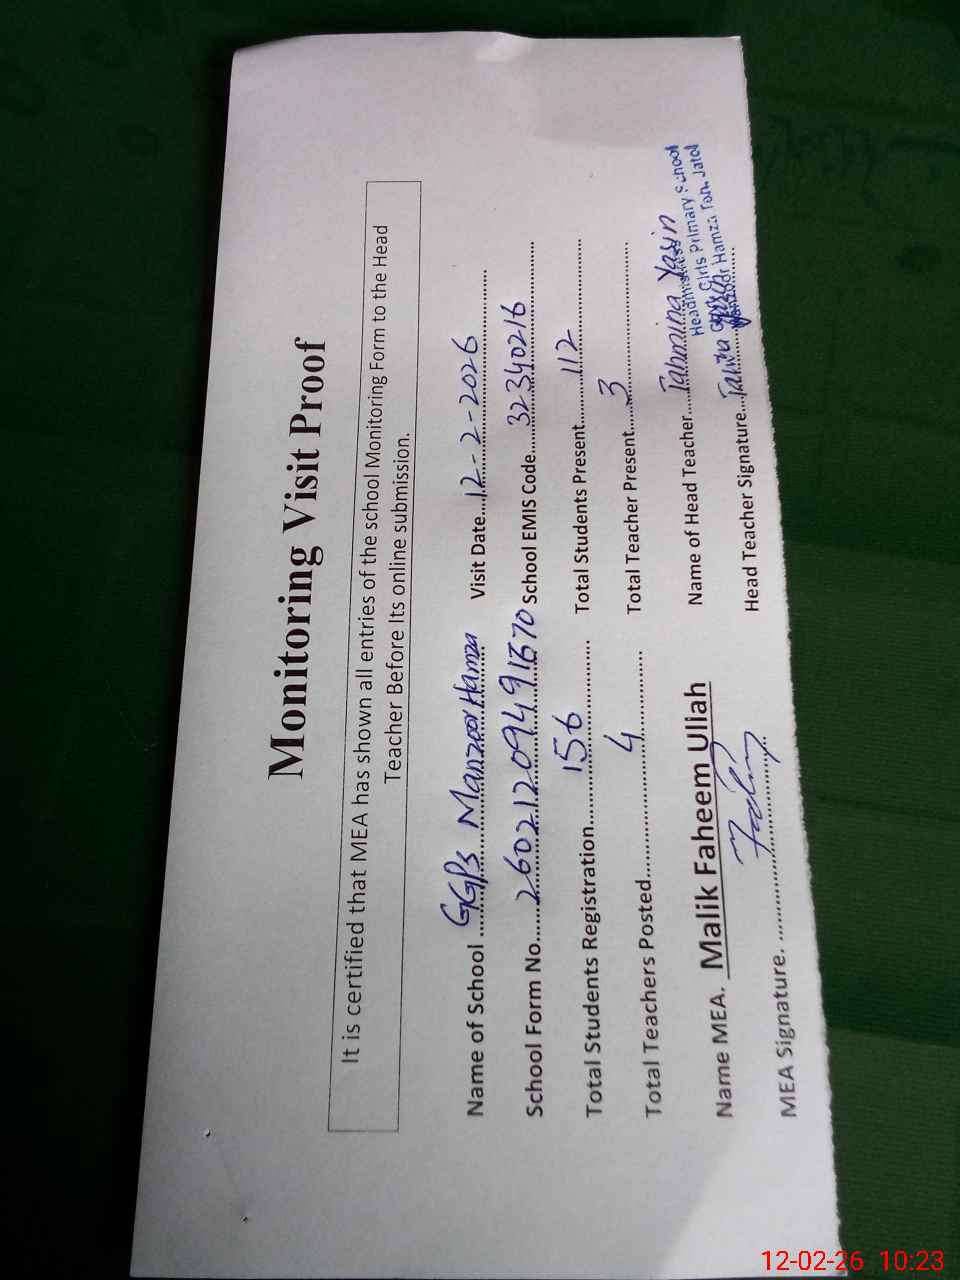 Monitoring Visit Proof
It is certified that MEA has shown all entries of the school Monitoring Form to the Head
Teacher Before Its online submission.
Name of School ..... GGPS Manzoor Hamza Visit Date..... 12-2-2026
School Form No..... School EMIS Code..... 32340216
Total Students Registration..... 156 Total Students Present..... 112
Total Teachers Posted..... 4 Total Teacher Present..... 3
Name MEA. Malik Faheem Ullah Name of Head Teacher..... Tahmina Yasin
Headmistress
Girls Primary School
Manzoor Hamza Teh. Jatoi
MEA Signature. ..... Head Teacher Signature.....
12-02-26 10:23